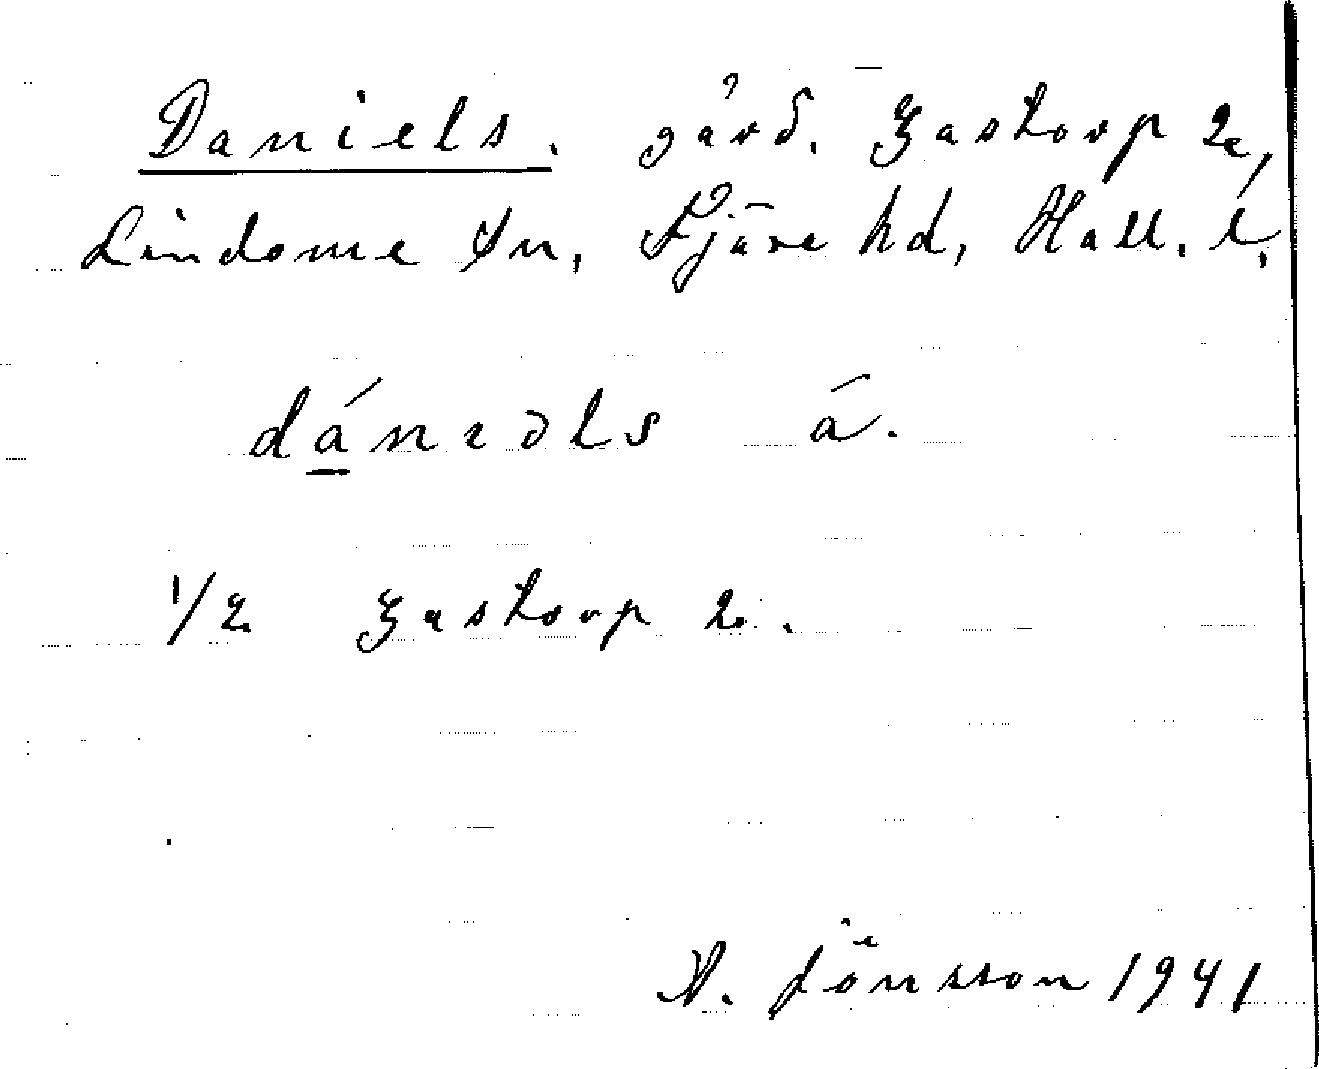 Daniels. gård. Gastorp 2,
Lindome sn, Fjäre hd, Hall. l.
dánɩəls á.
1/2 Gastorp 2.
A. Jönsson 1941